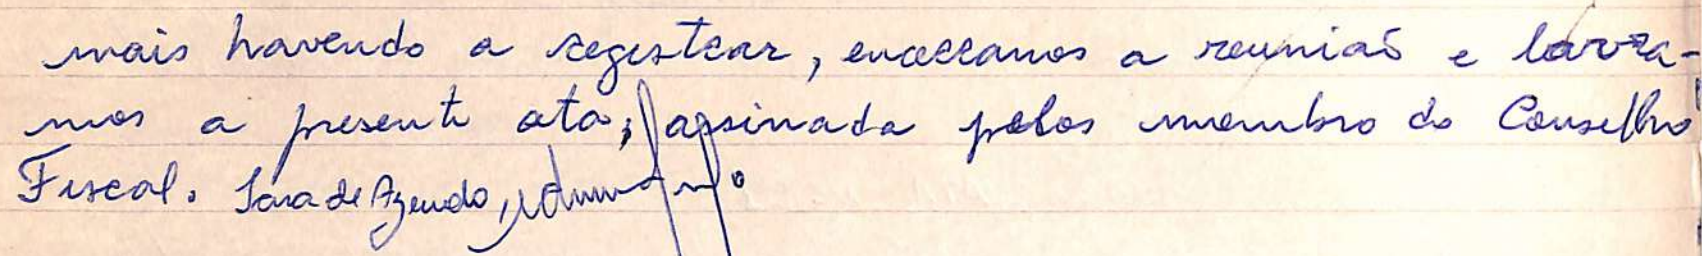 mais havendo a registrar, encerramos a reunião e lavra-
mos a presente ata, assinada pelos membro do Conselho
Fiscal. Sara de Azevedo,